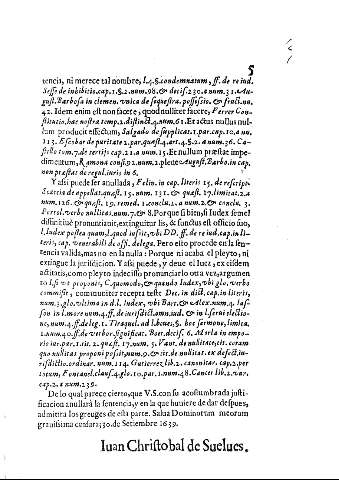 5
tencia, ni merece tal nombre, l.4.§.condemnatum, ff. de re iud.
Sesse de inhibitio.cap.1.§.2.num.98.& decis.230.a num.31.Au-
gust. Barbosa in clemen. vnica de sequestra.possessio. & fruct.nu.
42. Idem enim est non facere, quod nulliter facere, Ferrer Con-
stitutio. hac nostra temp.2.distinct.4.num.61. Et actus nullus nul-
lum producit effectum, Salgado de supplicat.1.par.cap.10.a nu.
113. Escobar de puritate 2.par.quæst.4.art.4.§.2.a num.36. Ca-
stillo tom.7.de tertijs cap.21.a num.15. Et nullum præstat impe-
dimentum, Ramona cons.92.num.1.plene August. Barbo.in cap.
non præstat de regul.iuris in 6.
Y assi puede ser anullada, Felin. in cap. literis 15. de rescript.
Scaccia de appellat.quæst.15. num.131.& quæst.17.limitat.2.a
num.126. & quæst.19. remed.1.conclu.2.a num.2.& conclu. 3.
Portol. verbo nullitas num.7.& 8. Porque si bien, si Iudex semel
diffinitiuè pronuntiauit, extinguitur lis, & functus est officio suo,
l. Iudex postea quam, l. quod iussit, vbi DD. ff. de re iud. cap. in li-
teris, cap. venerabili de offi. delega. Pero esto procede en la sen-
tencia valida, mas no en la nulla: Porque ni acaba el pleyto, ni
extingue la jurisdicion. Y assi puede, y deue el Iuez, ex eisdem
actitatis, como pleyto indecisso pronunciarlo otra vez, argumen-
to l. si vt proponis, C. quomodo, & quando Iudex, vbi glo. verbo
commissit, communiter recepta teste Dec. in dict. cap. in literis,
num.3. glo. vltima in d.l. Iudex, vbi Bart. & Alex.num.4. Ias-
son in l. more num.4. ff. de iurisdict. omn. iud. & in l. serui electio-
ne, num.4. ff. de leg.1. Tiraquel. ad l. boues, §. hoc sermone, limita.
1.num.40. ff. de verbor. significat. Boer. decis. 6. Merlo in empo-
rio iur.par.1.tit.2.quæst.17.num.5. Vant. de nullitate, tit. coram
quo nullitas proponi possit, num.9. & tit. de nullitat. ex defect. iu-
risdictio. ordinar. num.114. Gutierrez lib.2. canonitar. cap.2. per
totum, Fontanel. clausu.4.glo.10.par.1.num.48. Cancer lib.2. var.
cap.2.a num.239.
De lo qual parece cierto, que V.S. con su acostumbrada justi-
ficacion anullarà la sentencia, y en la que huuiere de dar despues,
admitira los greuges de esta parte. Salua Dominorum meorum
grauissima censura; 30. de Setiembre 1639.
Iuan Christobal de Suelues.